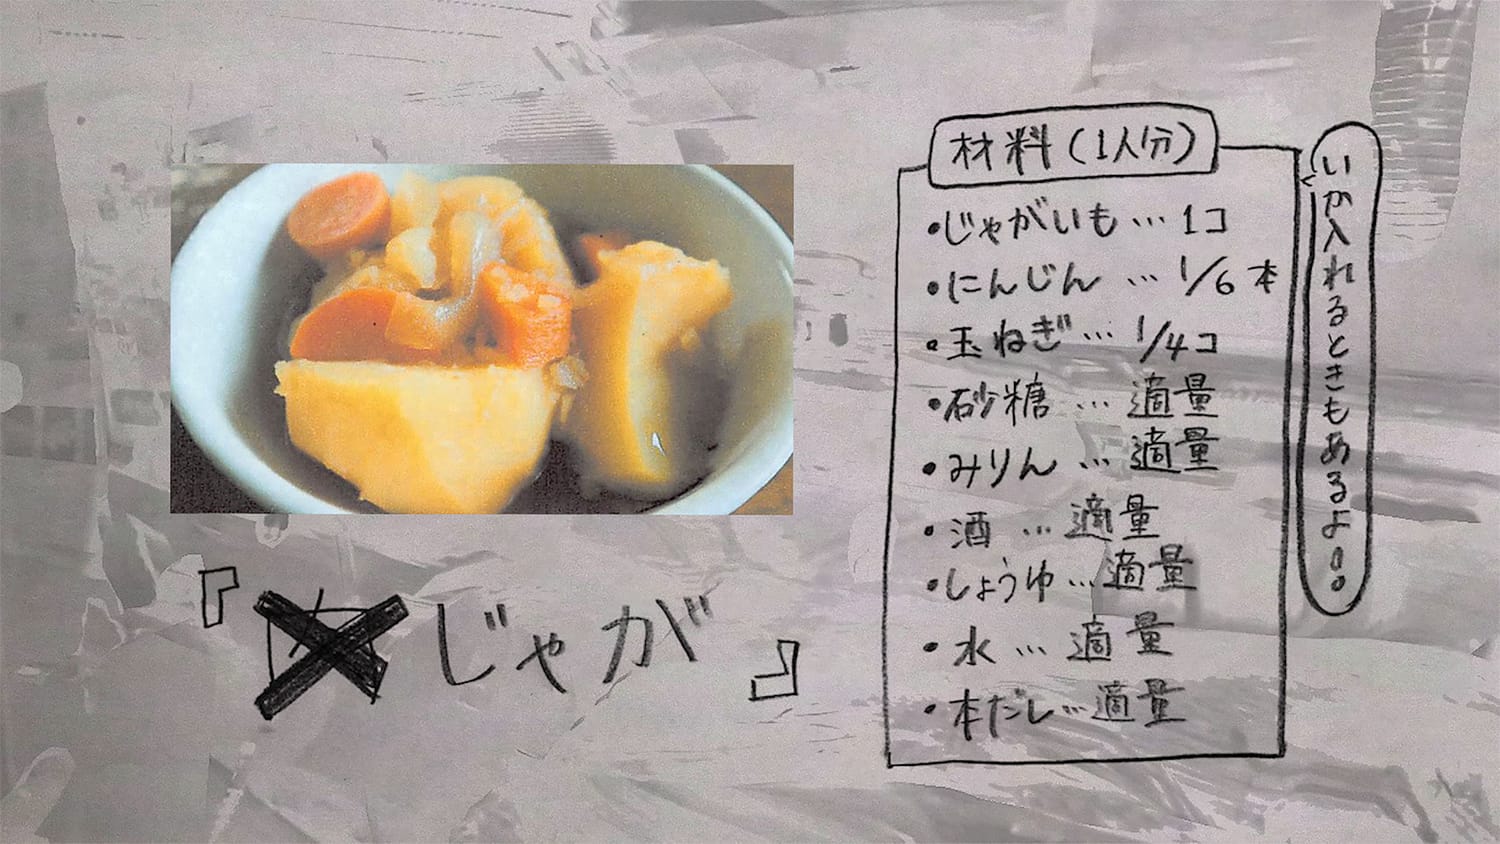 『肉じゃが』
材料(1人分)
・じゃがいも…1コ
・にんじん…1/6本
・玉ねぎ…1/4コ
・砂糖…適量
・みりん…適量
・酒…適量
・しょうゆ…適量
・水…適量
・本だし…適量
いか入れるときもあるよ!!